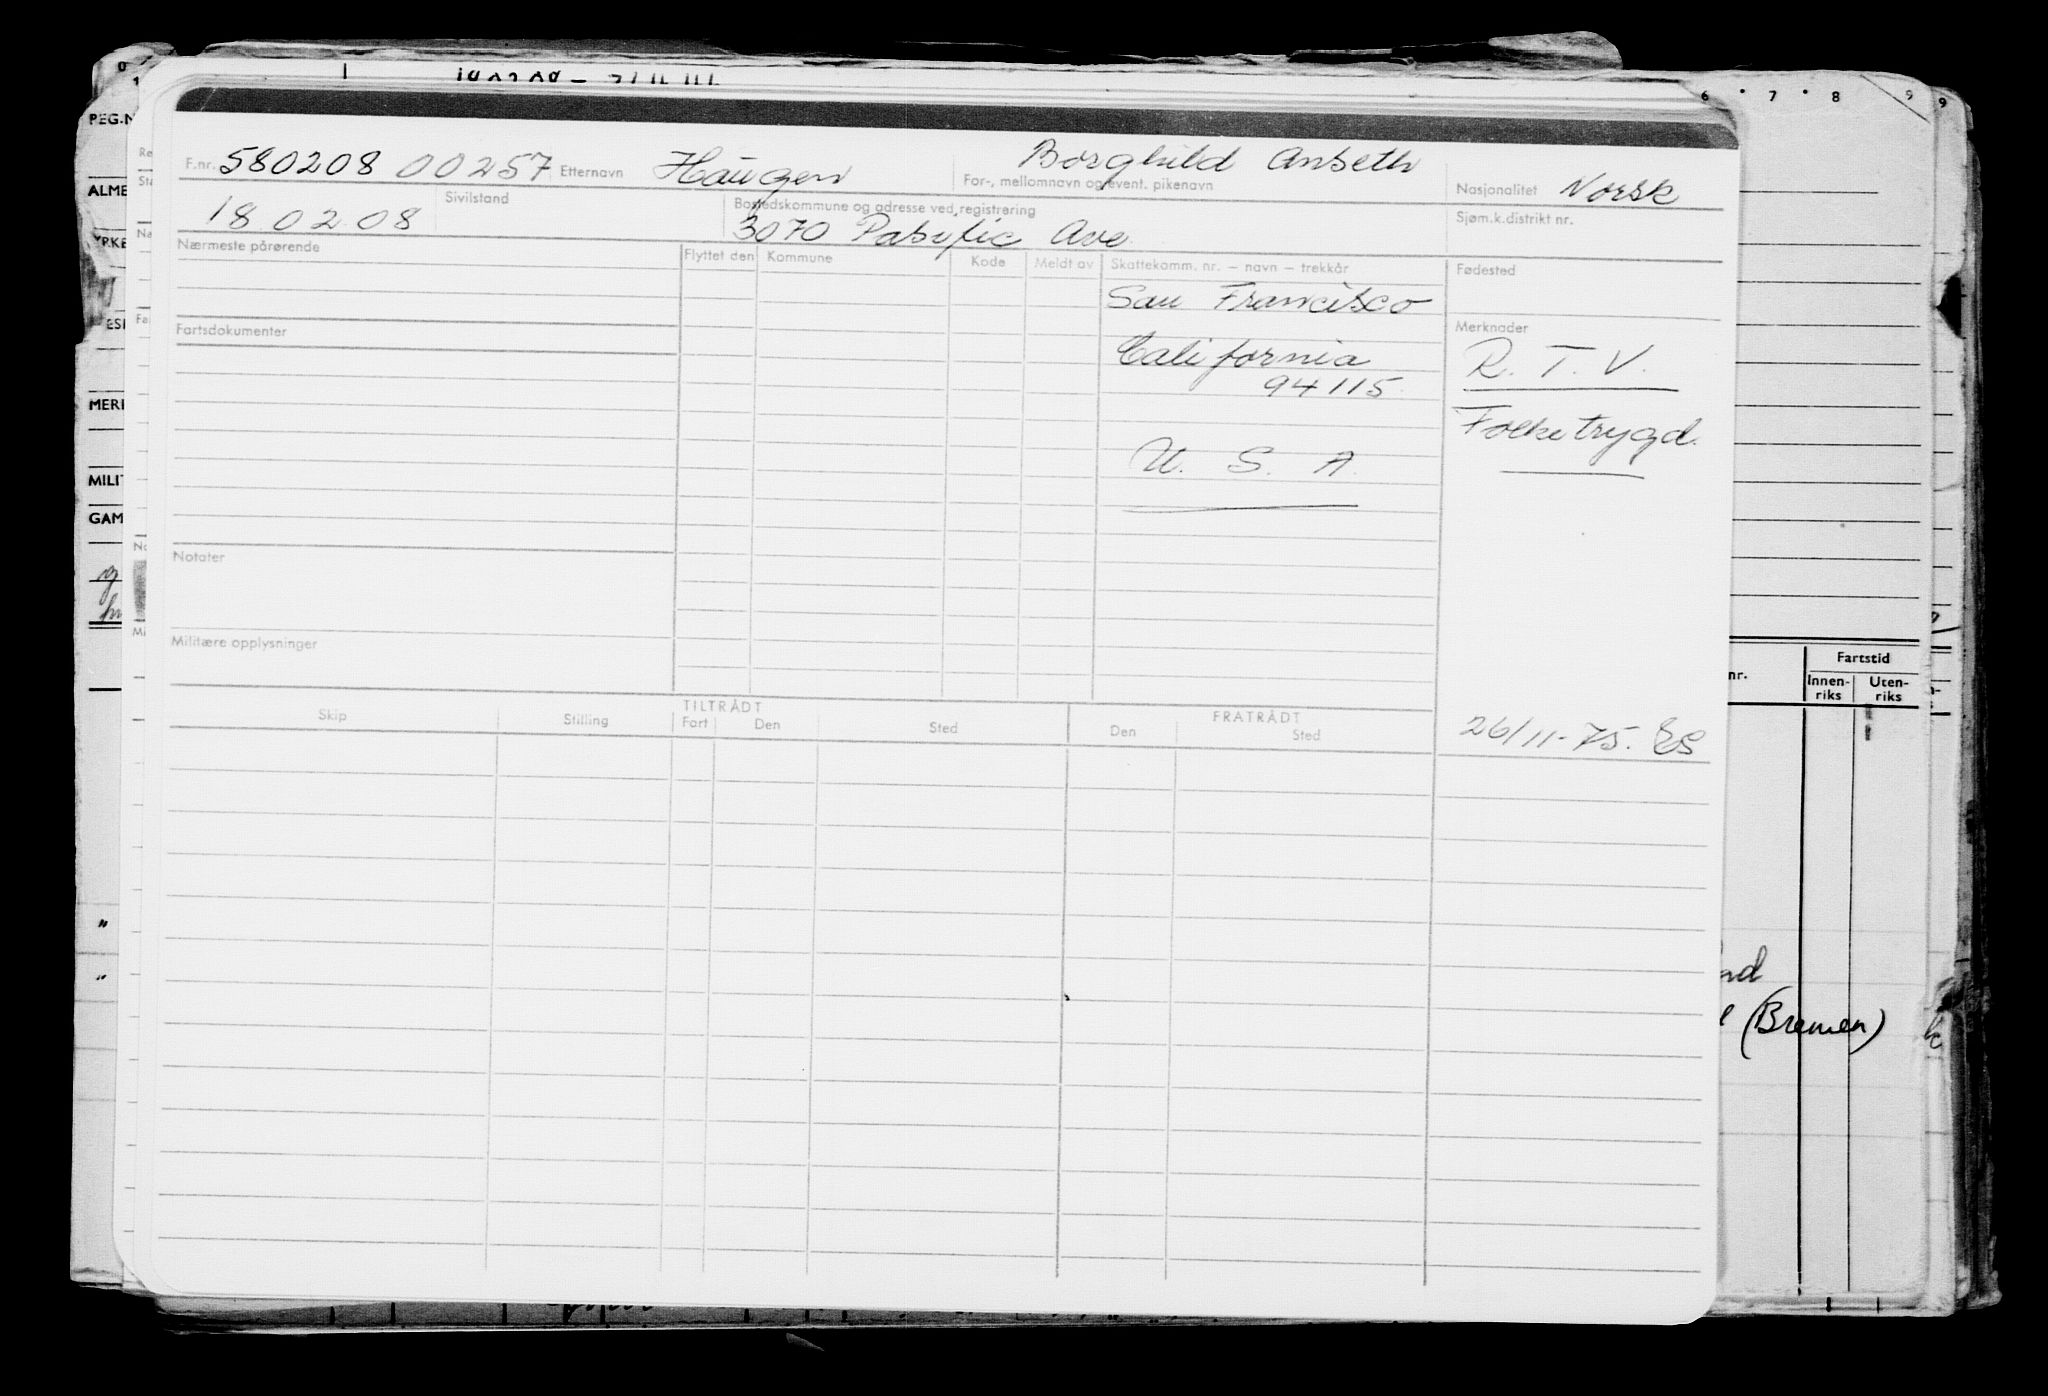 F.nr. 580208 00257 Etternavn Haugen Borghild Anseth
For-, mellomnavn og event. pikenavn Nasjonalitet Norsk
18 02 08 Sivilstand Bostedskommune og adresse ved registrering Sjøm.k.distrikt nr.
3070 Pasific Ave
Nærmeste pårørende Flyttet den Kommune Kode Meldt av Skattekomm. nr. – navn – trekkår Fødested
San Francisco
Fartsdokumenter Merknader
California R. T. V.
94115
Folketrygd.
U. S. A.
Notater
Militære opplysninger
TILTRÅDT FRATRÅDT
Skip Stilling Fart Den Sted Den Sted
26/11-75. ES
6 7 8 9 9
ALME
MERI
MILIT
GAM
Fartstid
nr. Innen-riks Uten-riks
(Bremen)